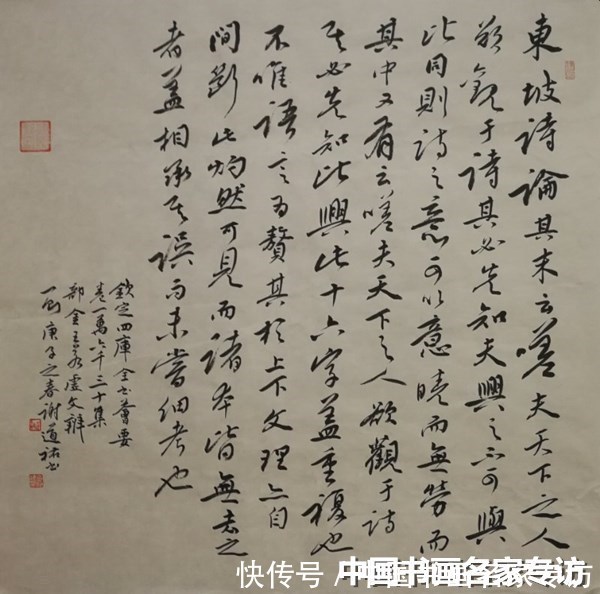 東坡詩論其末云嗟夫天下之人
欲觀于詩其必先知夫興之不可與
比同則詩之意可以意曉而無勞而
其中又有云嗟夫天下之人欲觀于詩
其必先知比興此十六字蓋重複也
不唯語言為贅其於上下文理亦自
間斷此灼然可見而諸本皆無去之
者蓋相承其誤而未嘗細考也
欽定四庫全書薈要
卷一萬六千三十集
部金王若虛文辨
一則庚子之春謝道書
中国书画名家专访
快传号 / 中国书画名家专访